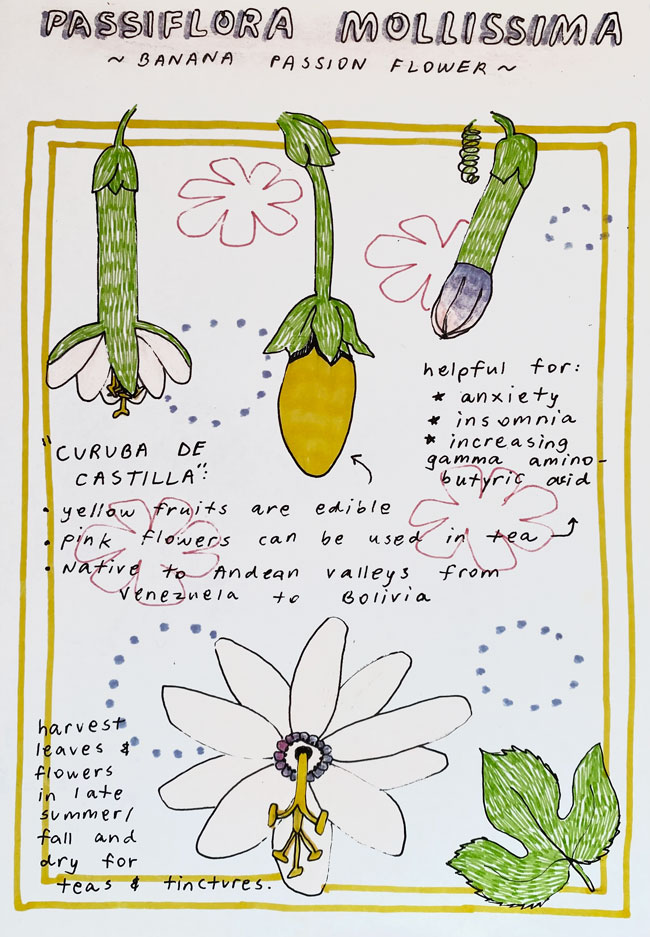 PASSIFLORA MOLLISSIMA
~ BANANA PASSION FLOWER ~
helpful for:
* anxiety
* insomnia
* increasing
gamma amino-
butyric acid
"CURUBA DE
CASTILLA":
• yellow fruits are edible
• pink flowers can be used in tea
• Native to Andean valleys from
Venezuela to Bolivia
harvest
leaves &
flowers
in late
summer/
fall and
dry for
teas & tinctures.